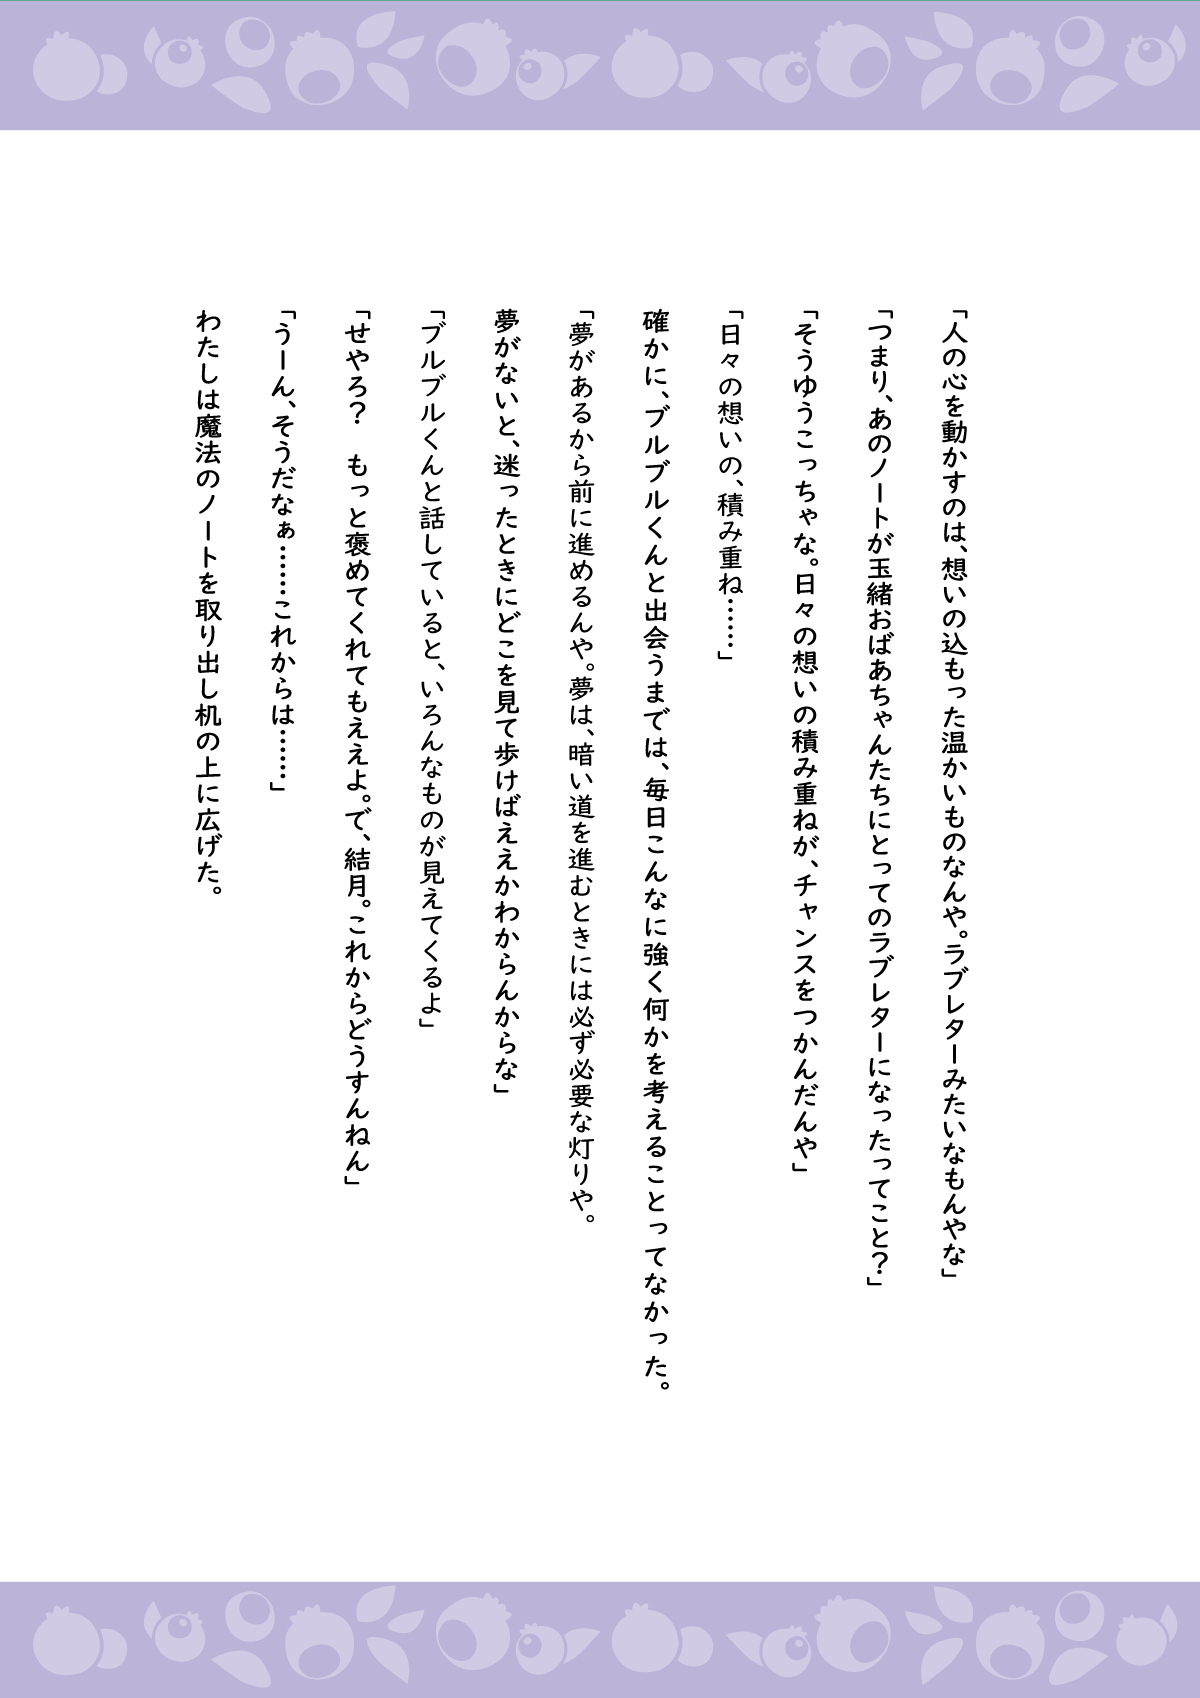 「人の心を動かすのは、想いの込もった温かいものなんや。ラブレターみたいなもんやな」
「つまり、あのノートが玉緒おばあちゃんたちにとってのラブレターになったってこと？」
「そうゆうこっちゃな。日々の想いの積み重ねが、チャンスをつかんだんや」
「日々の想いの、積み重ね……」
確かに、ブルブルくんと出会うまでは、毎日こんなに強く何かを考えることってなかった。
「夢があるから前に進めるんや。夢は、暗い道を進むときには必ず必要な灯りや。
夢がないと、迷ったときにどこを見て歩けばええかわからんからな」
「ブルブルくんと話していると、いろんなものが見えてくるよ」
「せやろ？　もっと褒めてくれてもええよ。で、結月。これからどうすんねん」
「うーん、そうだなぁ……これからは……」
わたしは魔法のノートを取り出し机の上に広げた。